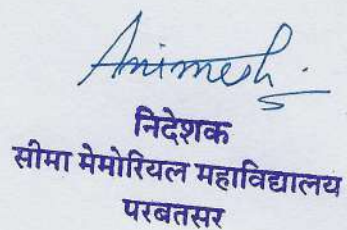 Animesh
निदेशक
सीमा मेमोरियल महाविद्यालय
परबतसर